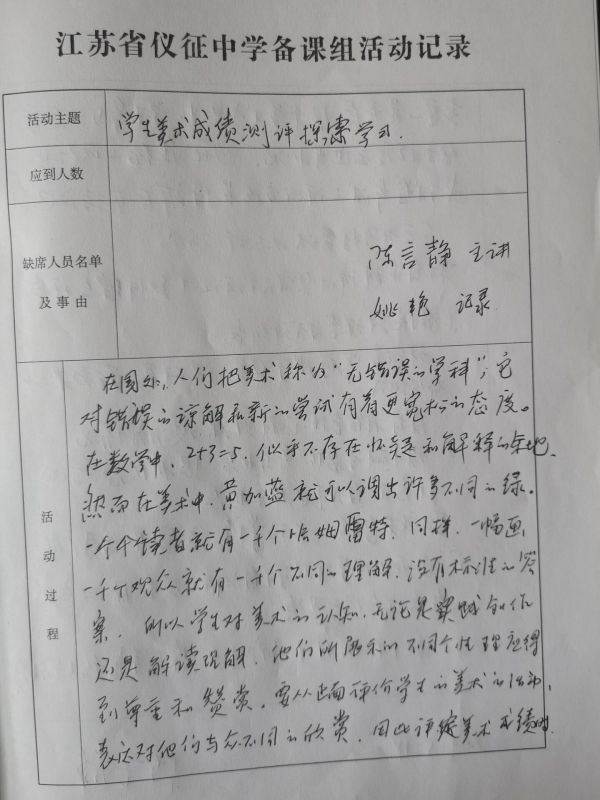 江苏省仪征中学备课组活动记录
活动主题
学生美术成绩测评探索学习.
应到人数
缺席人员名单
及事由
陈言静 主讲
姚艳 记录
活动过程
在国外, 人们把美术称为“无错误的学科”, 它
对错误的谅解和新的尝试有着更宽松的态度。
在数学中, 2+3=5, 似乎不存在怀疑和解释的余地.
然而在美术中, 黄加蓝就可以调出许多不同的绿。
一千个读者就有一千个哈姆雷特, 同样, 一幅画
一千个观众就有一千个不同的理解, 没有标准的答
案, 所以学生对美术的认知, 无论是实践创作
还是解读理解, 他们所展示的不同个性理应得
到尊重和赞赏, 要从正面评价学生的美术的活动,
表达对他们与众不同的欣赏, 因此评定美术成绩时